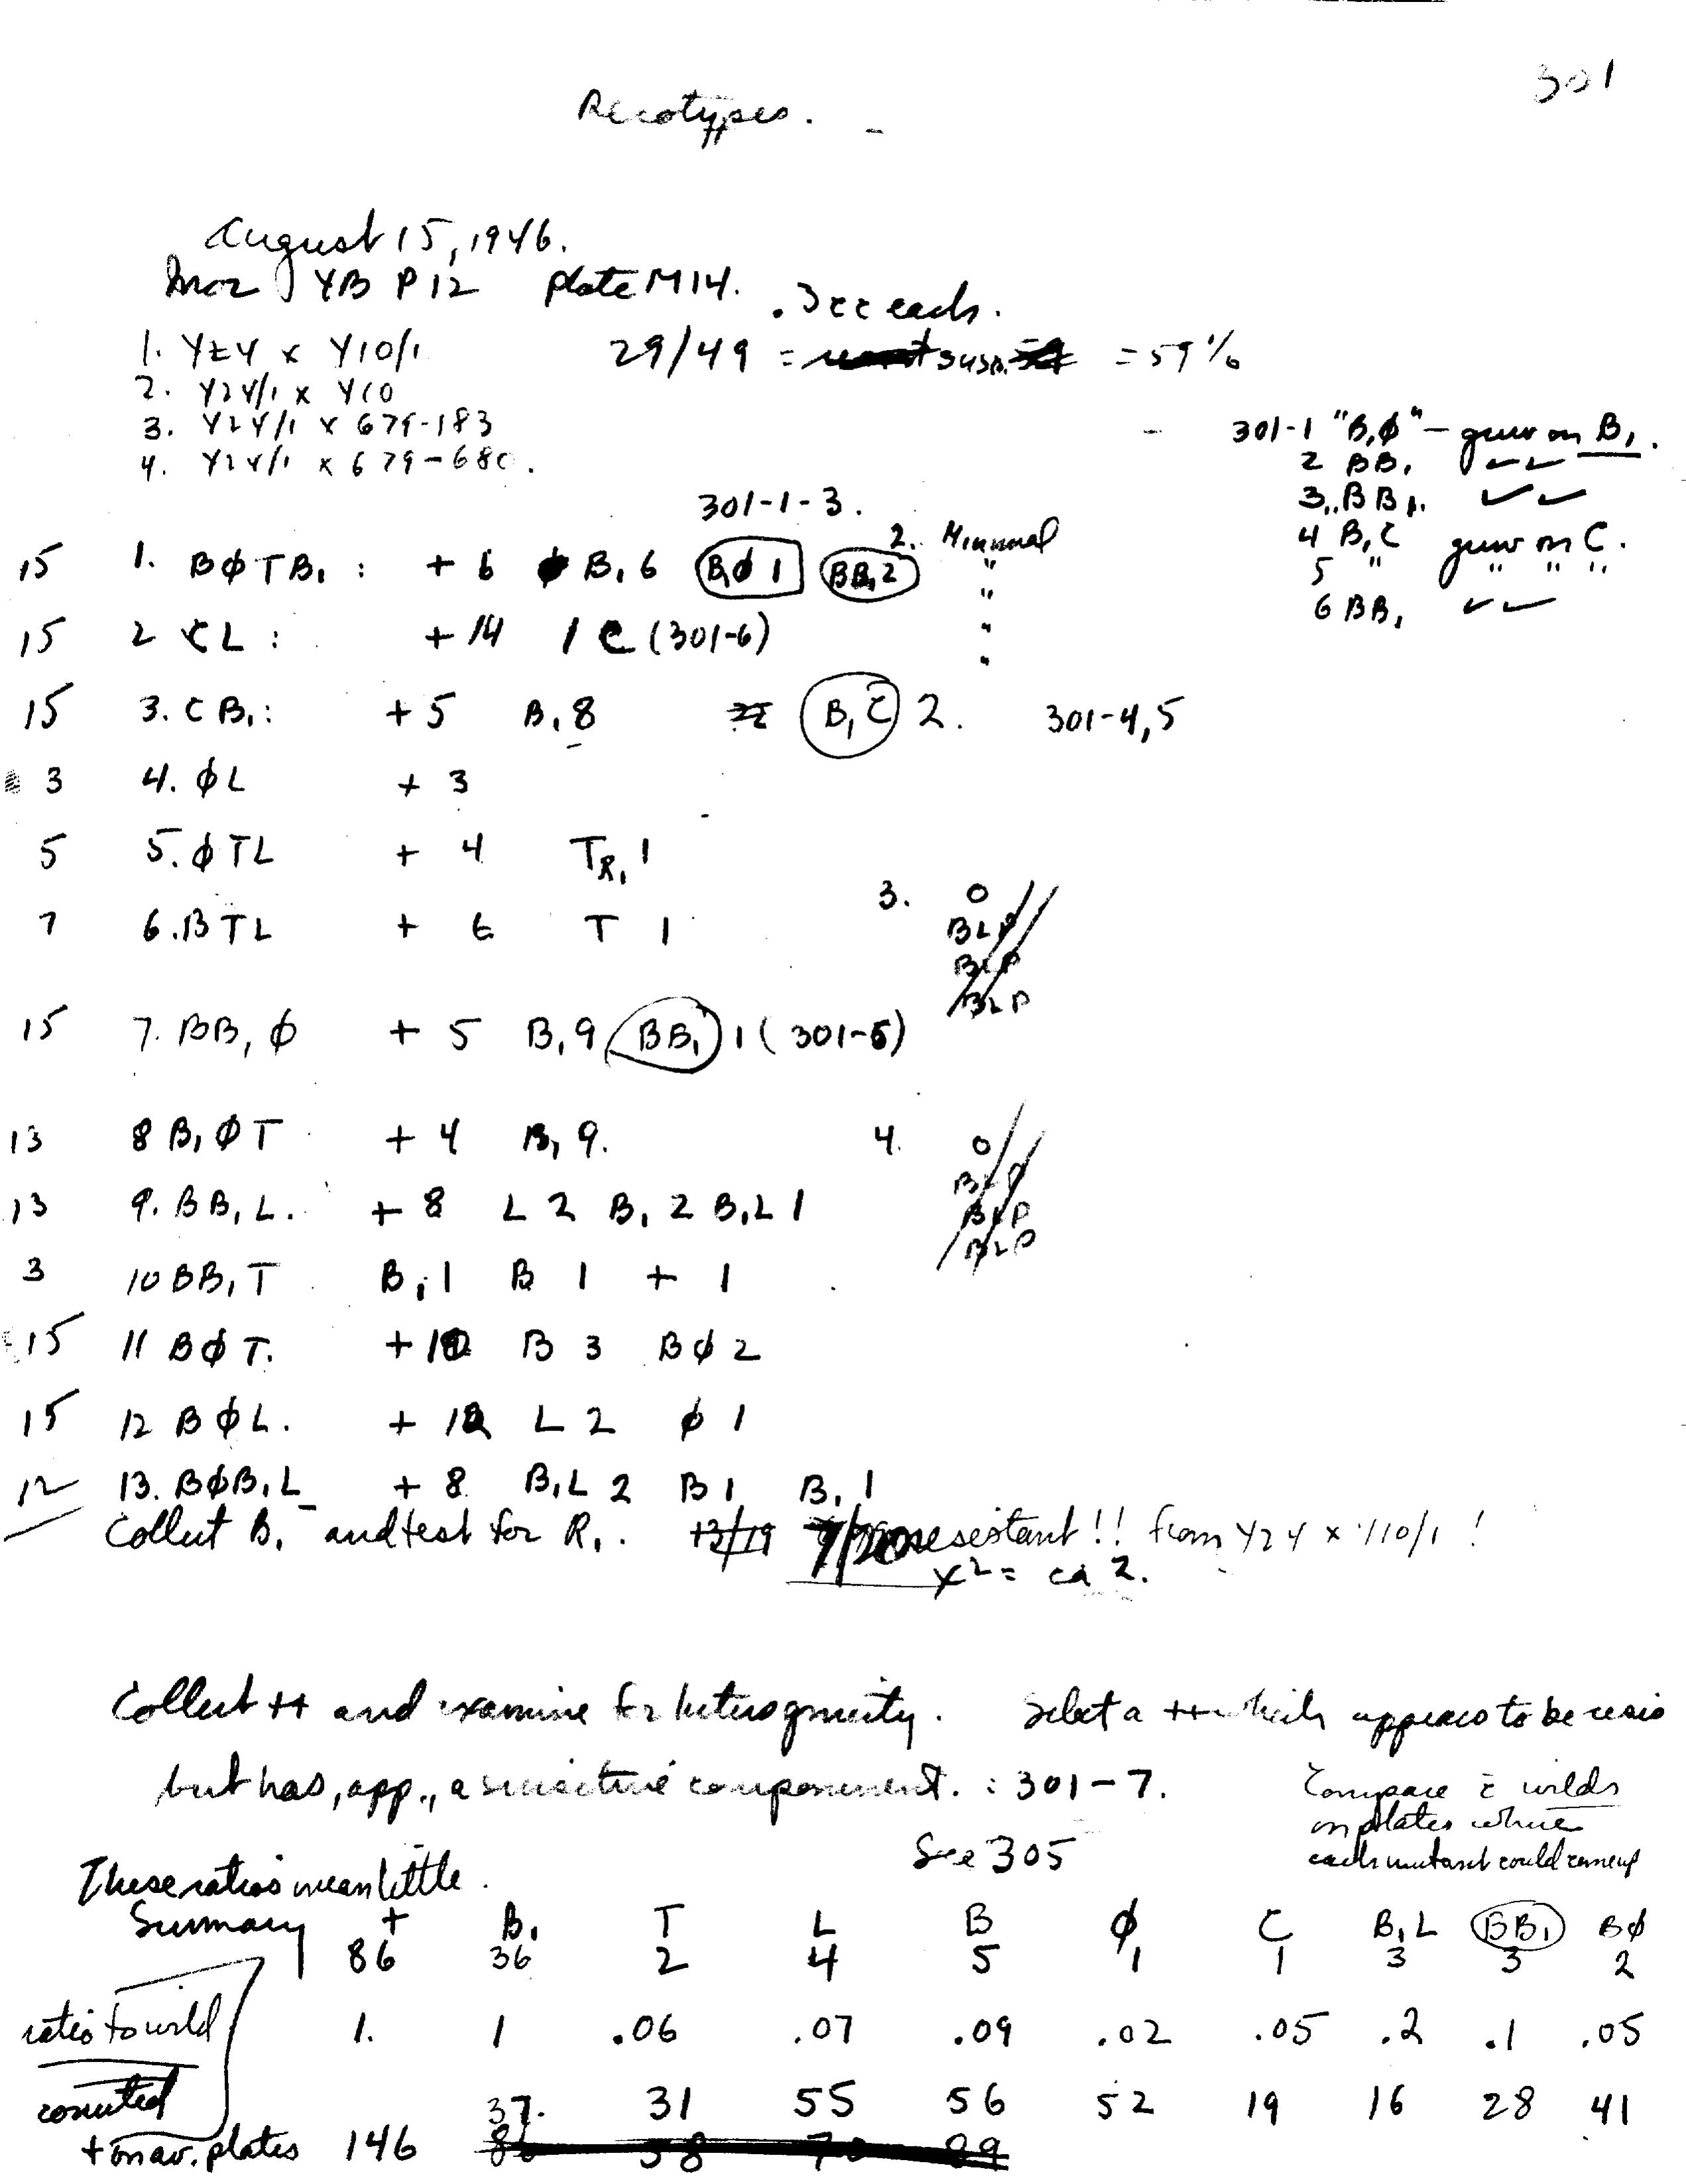 301
Recotypes. -
August 15, 1946.
YB P12 plate M14. .3 cc each.
1. YZ4 x Y10/1 29/49 = = 59%
2. Y24/1 x Y10
3. Y24/1 x 679-183
4. Y24/1 x 679-680.
301-1 "B1ϕ" - grew on B1.
2 BB1 ✓✓
3. BB1. ✓✓
4 B1C grew on C.
5 " " " "
6 BB1 ✓✓
301-1-3.
2. Minimal
"
"
"
15 1. BϕTB1 : + 6 B1 6 Bϕ 1 BB1 2
15 2 CL : + 14 1 C (301-6)
15 3. CB1: + 5 B1 8 B1C 2. 301-4,5
3 4. ϕL + 3
5 5. ϕTL + 4 1
7 6. BTL + 6 T 1
3. 0
BLP
BLP
BLP
15 7. BB1ϕ + 5 B1 9 BB1 1 (301-6)
13 8 B1ϕT + 4 B1 9.
4. 0
BLP
BLP
BLP
13 9. BB1L. + 8 L 2 B1 2 B1L 1
3 10 BB1T B1 1 B 1 + 1
15 11 BϕT. + 10 B 3 Bϕ 2
15 12 BϕL. + 12 L 2 ϕ 1
12 13. BϕB1L + 8 B1L 2 B 1 B1 1
Collect B1 and test for R1. 7/20 resistant!! from Y24 x Y10/1 !
X² = ca 2.
Collect ++ and examine for heterogeneity. Select a ++ which appears to be resis
but has, app., a sensitive component. : 301-7.
See 305
Compare c̄ wilds
on plates where
each mutant could come up
These ratios mean little.
Summary + B1 T L B ϕ C B1L BB1 Bϕ
86 36 2 4 5 1 1 3 3 2
ratio to wild 1. 1 .06 .07 .09 .02 .05 .2 .1 .05
37. 31 55 56 52 19 16 28 41
+ on av. plates 146 86 58 70 89